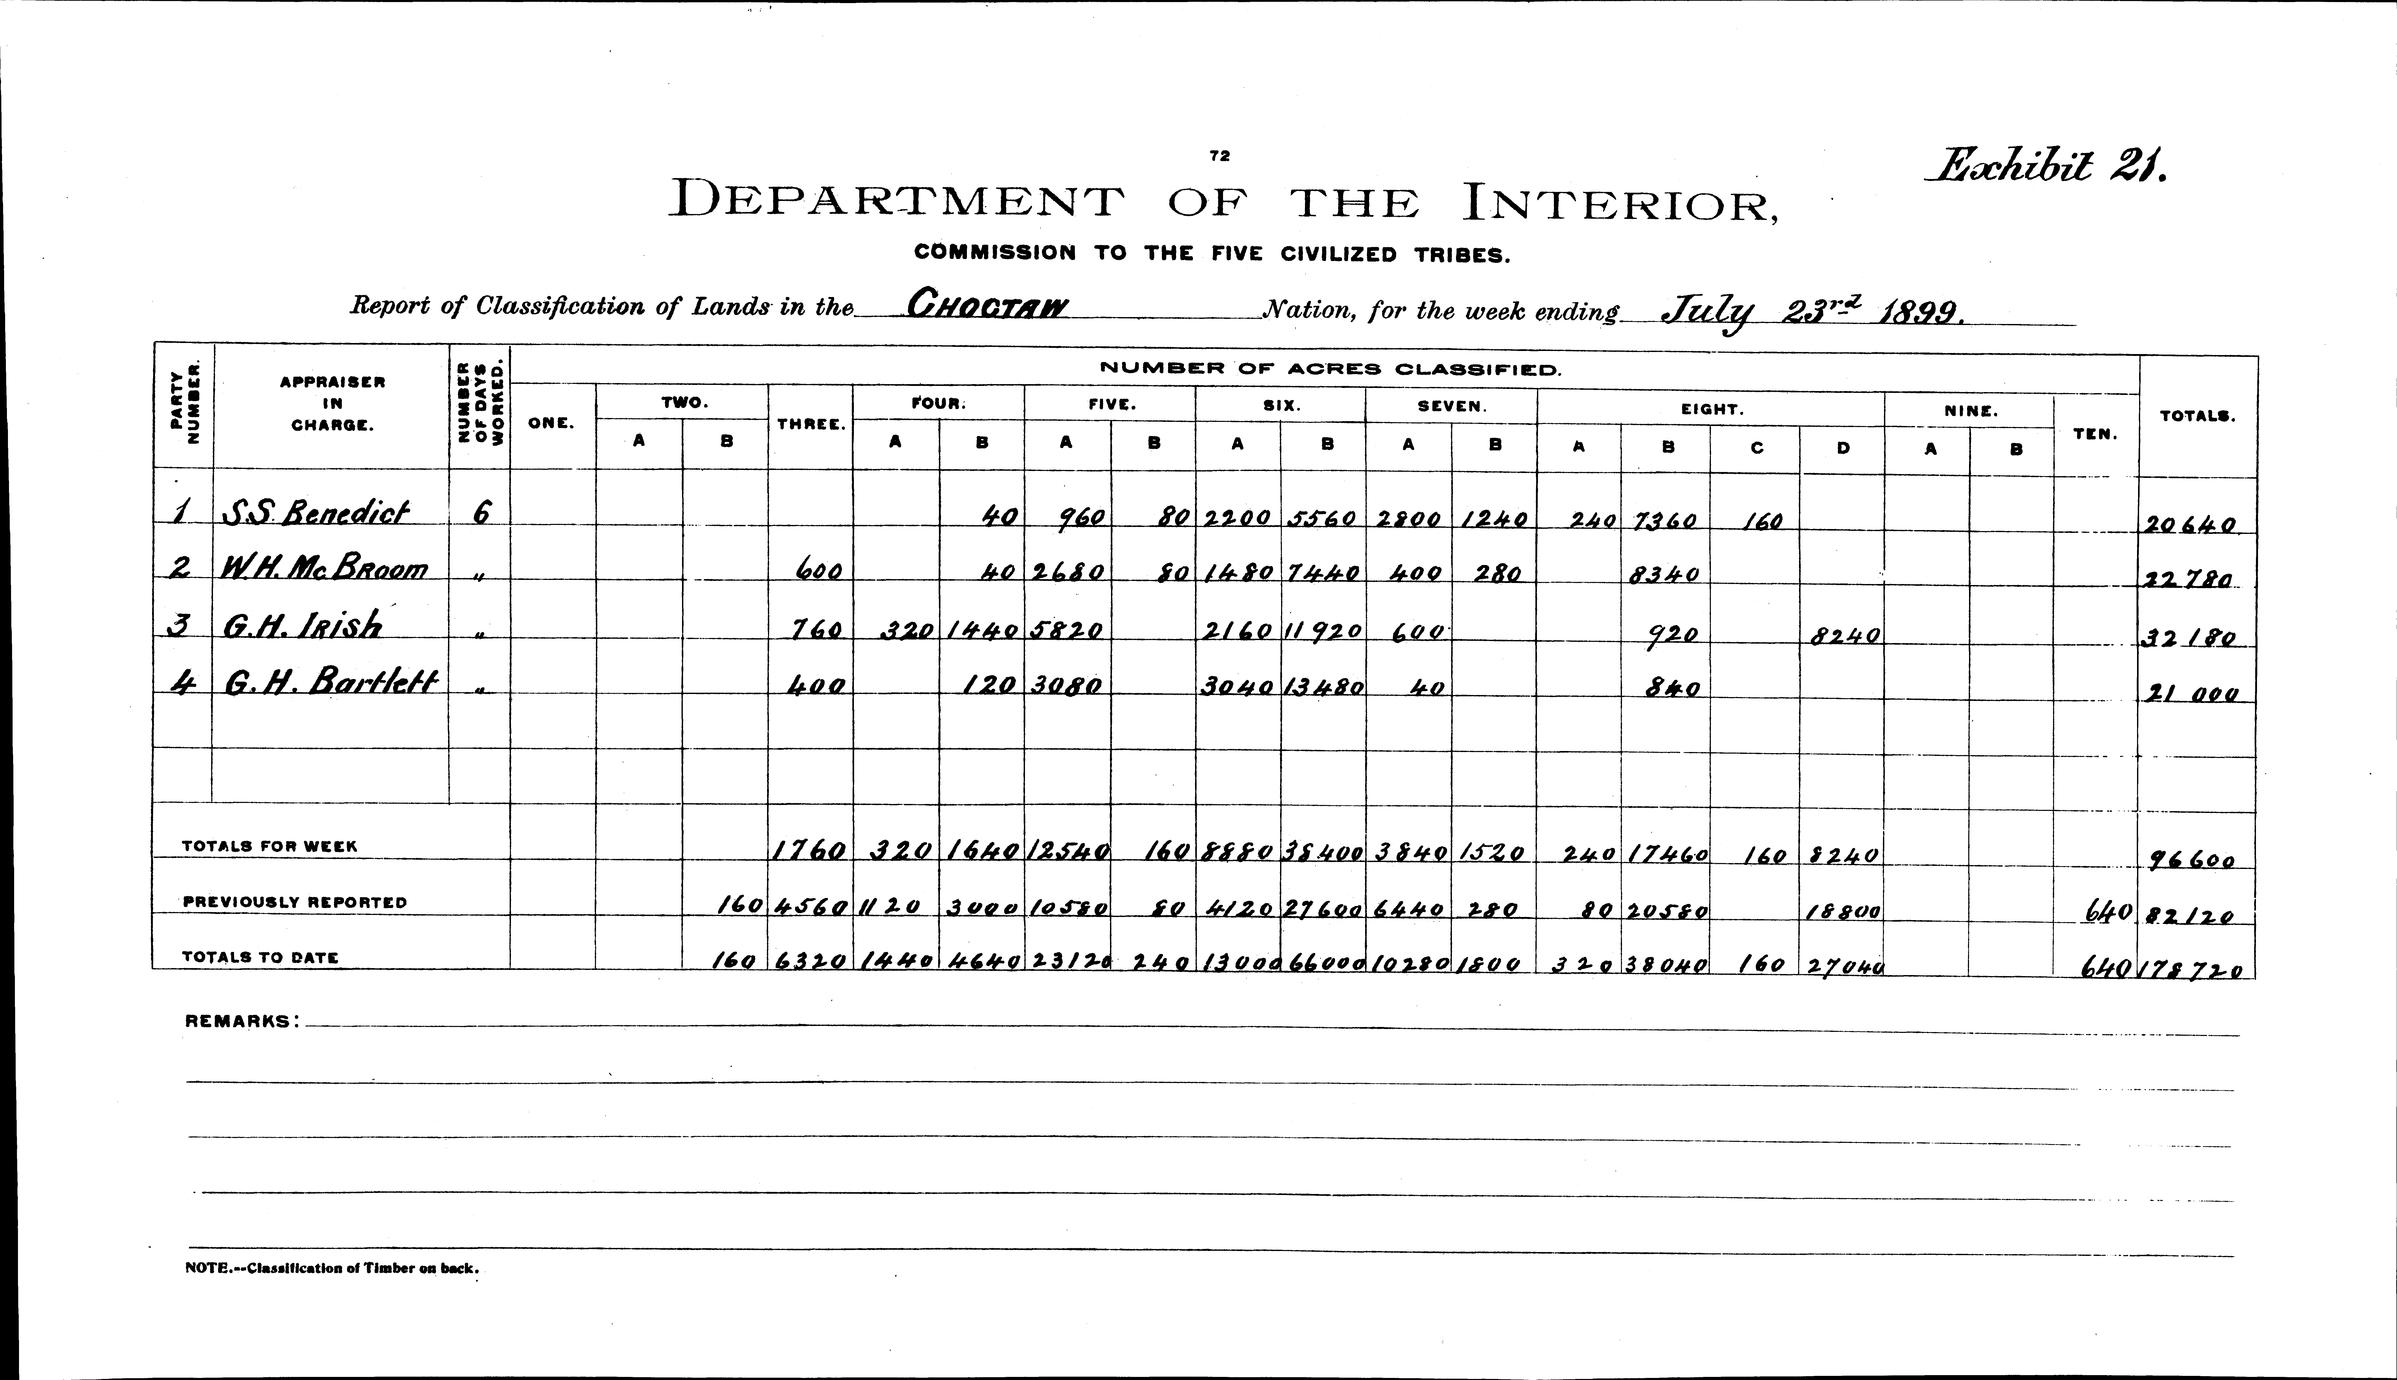 72
Exhibit 21.
DEPARTMENT OF THE INTERIOR,
COMMISSION TO THE FIVE CIVILIZED TRIBES.
Report of Classification of Lands in the CHOCTAW Nation, for the week ending July 23rd 1899.
PARTY NUMBER. APPRAISER IN CHARGE. NUMBER OF DAYS WORKED. NUMBER OF ACRES CLASSIFIED. TOTALS.
ONE. TWO. THREE. FOUR. FIVE. SIX. SEVEN. EIGHT. NINE. TEN.
A B A B A B A B A B A B C D A B
1 S.S. Benedict 6 40 960 80 2200 5560 2800 1240 240 7360 160 20640
2 W.H. McBroom " 600 40 2680 80 1480 7440 400 280 8340 22780
3 G.H. Irish " 760 320 1440 5820 2160 11920 600 920 8240 32180
4 G.H. Bartlett " 400 120 3080 3040 13480 40 840 21000
TOTALS FOR WEEK 1760 320 1640 12540 160 8880 38400 3840 1520 240 17460 160 8240 96600
PREVIOUSLY REPORTED 160 4560 1120 3000 10580 80 4120 27600 6440 280 80 20580 18800 640 82120
TOTALS TO DATE 160 6320 1440 4640 23120 240 13000 66000 10280 1800 320 38040 160 27040 640 178720
REMARKS:
NOTE.--Classification of Timber on back.